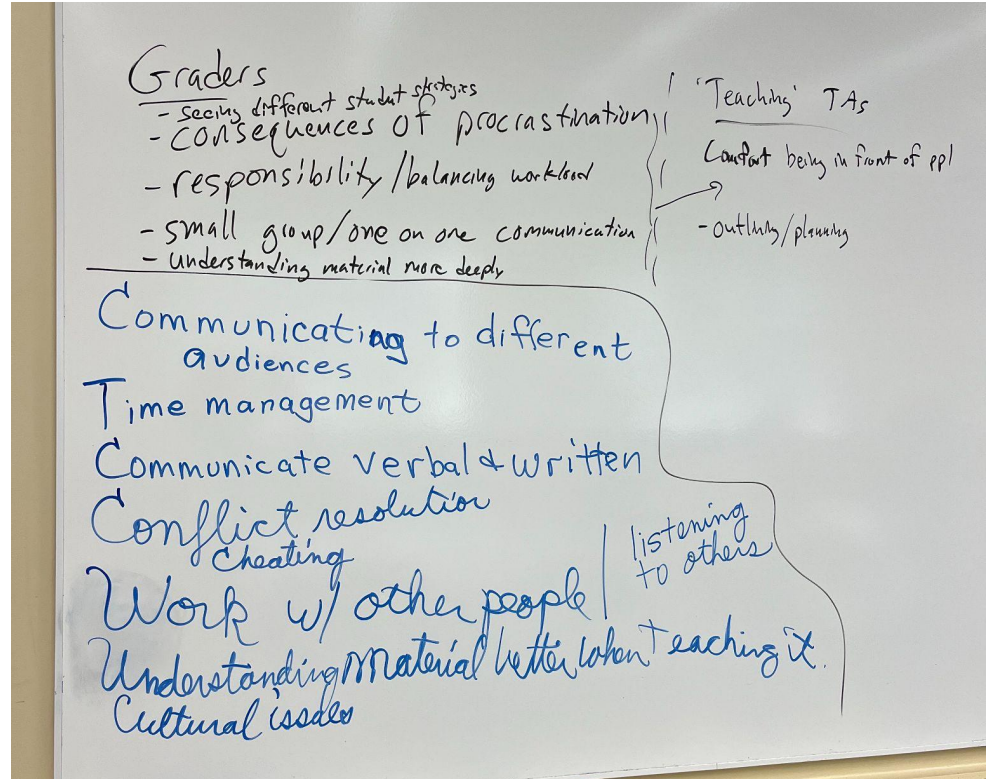 Graders
- seeing different student strategies
- consequences of procrastination
- responsibility/balancing workload
- small group/one on one communication
- understanding material more deeply
'Teaching' TAs
Comfort being in front of ppl
- outlining/planning
Communicating to different
audiences
Time management
Communicate verbal & written
Conflict resolution
Cheating
Work w/ other people
listening
to others
Understanding Material better when teaching it.
Cultural issues